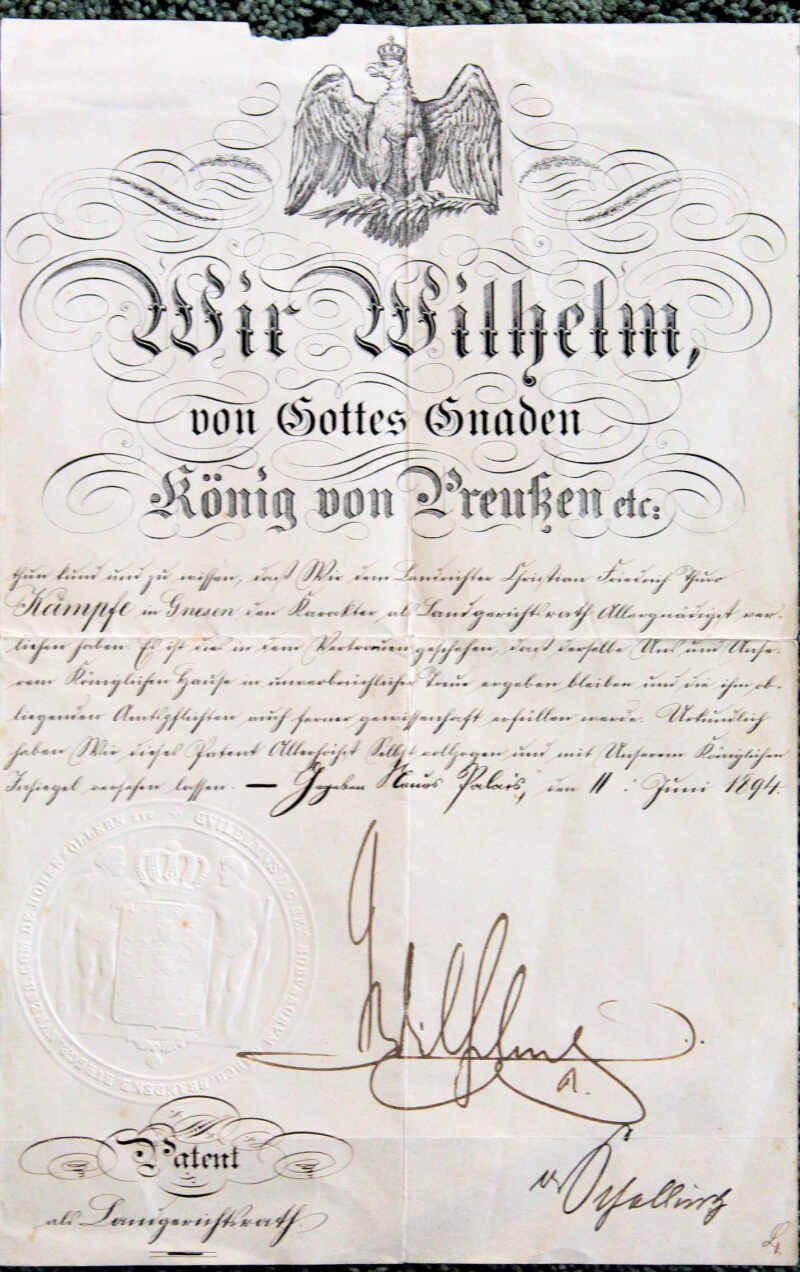 Wir Wilhelm,
von Gottes Gnaden
König von Preußen etc:
thun kund und zu wissen, daß Wir dem Landrichter Christian Friedrich Thuro
Kämpfe in Gnesen den Karakter als Landgerichtsrath Allergnädigst ver-
liehen haben. Es ist dies in dem Vertrauen geschehen, daß derselbe Uns und Unse-
rem Königlichen Hause in unverbrüchlicher Treue ergeben bleiben und die ihm ob-
liegenden Amtspflichten auch ferner gewissenhaft erfüllen werde. Urkundlich
haben Wir dieses Patent Allerhöchst Selbst vollzogen und mit Unserem Königlichen
Insiegel versehen lassen. — Gegeben Neues Palais, den 11. Juni 1894.
Wilhelm
R.
Patent
als Landgerichtsrath
v Schelling